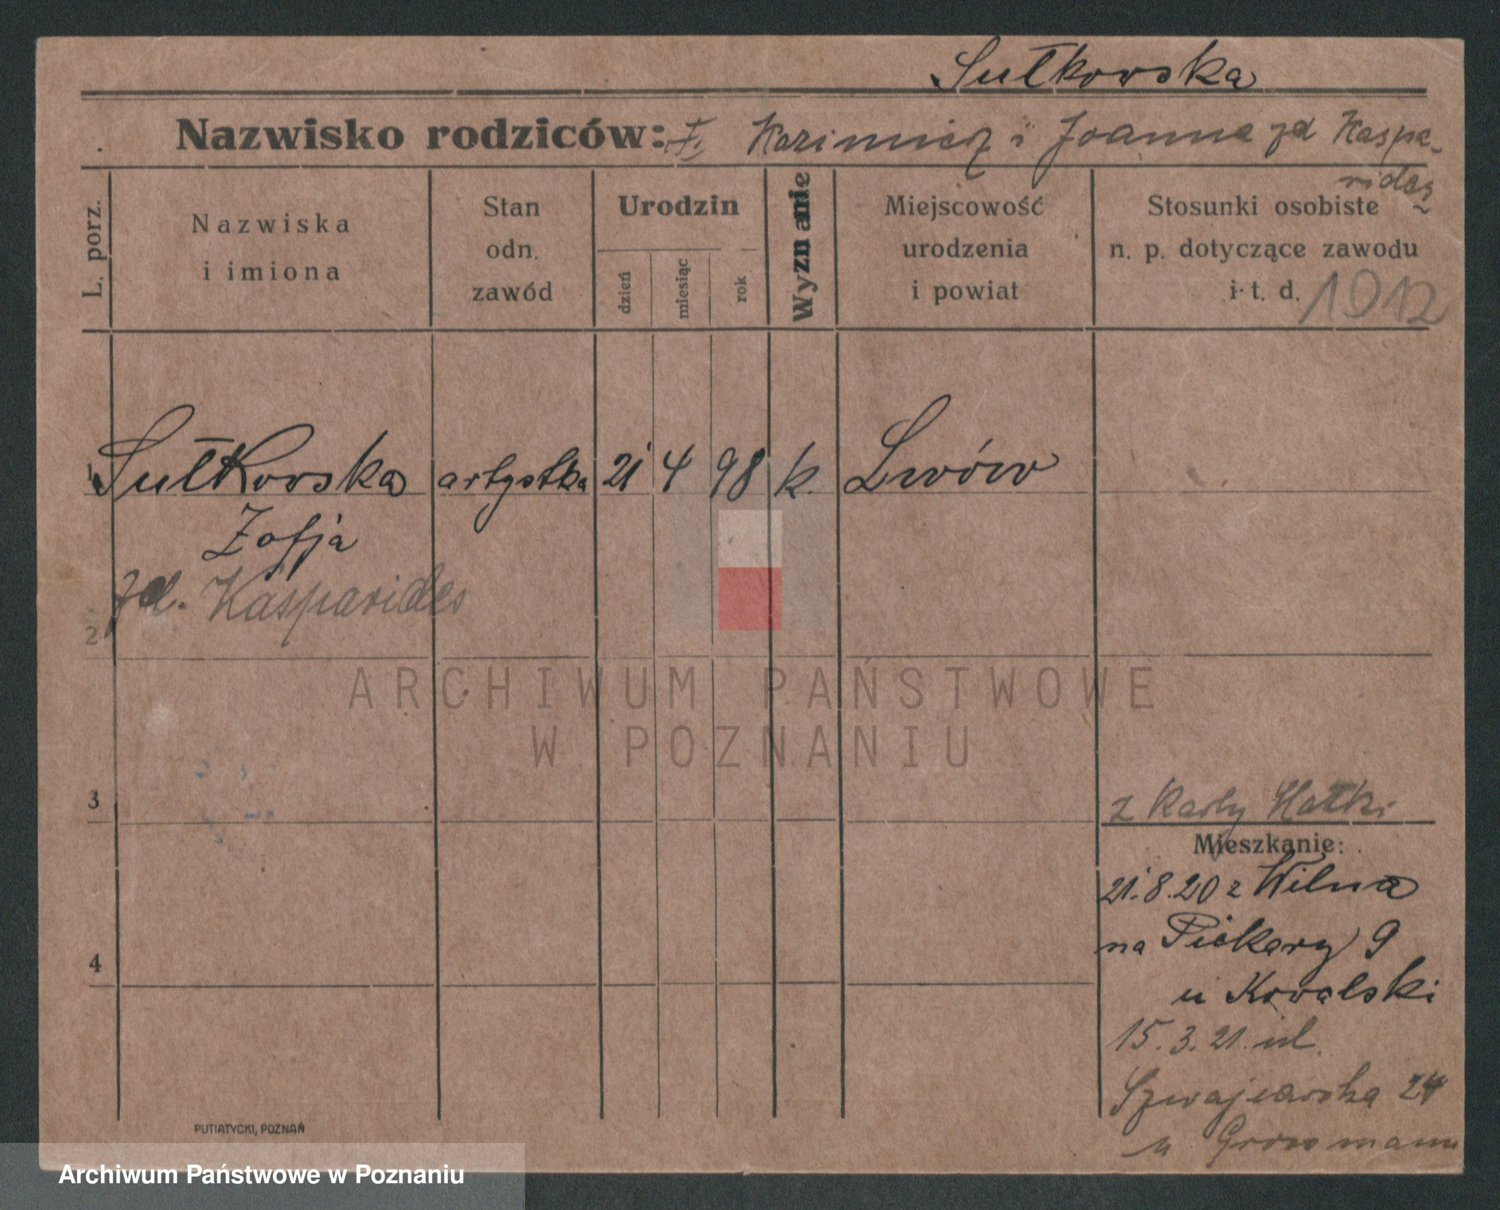 Sułkowska
Nazwisko rodziców: Kazimierz i Joanna zd Kaspa-
rides
L. porz.
Nazwiska
i imiona
Stan
odn.
zawód
Urodzin
dzień
miesiąc
rok
Wyznanie
Miejscowość
urodzenia
i powiat
Stosunki osobiste
n. p. dotyczące zawodu
i t. d. 1912
1 Sułkowska artystka 21 4 98 k. Lwów
Zofja
zd. Kasparides
2
3
z karty Matki
Mieszkanie:
21.8.20 z Wilna
na Piekary 9
4
u Kowalski
15.3.21. ul.
Szwajcarska 24
u Grossmann
PUTIATYCKI, POZNAŃ
ARCHIWUM PAŃSTWOWE
W POZNANIU
Archiwum Państwowe w Poznaniu